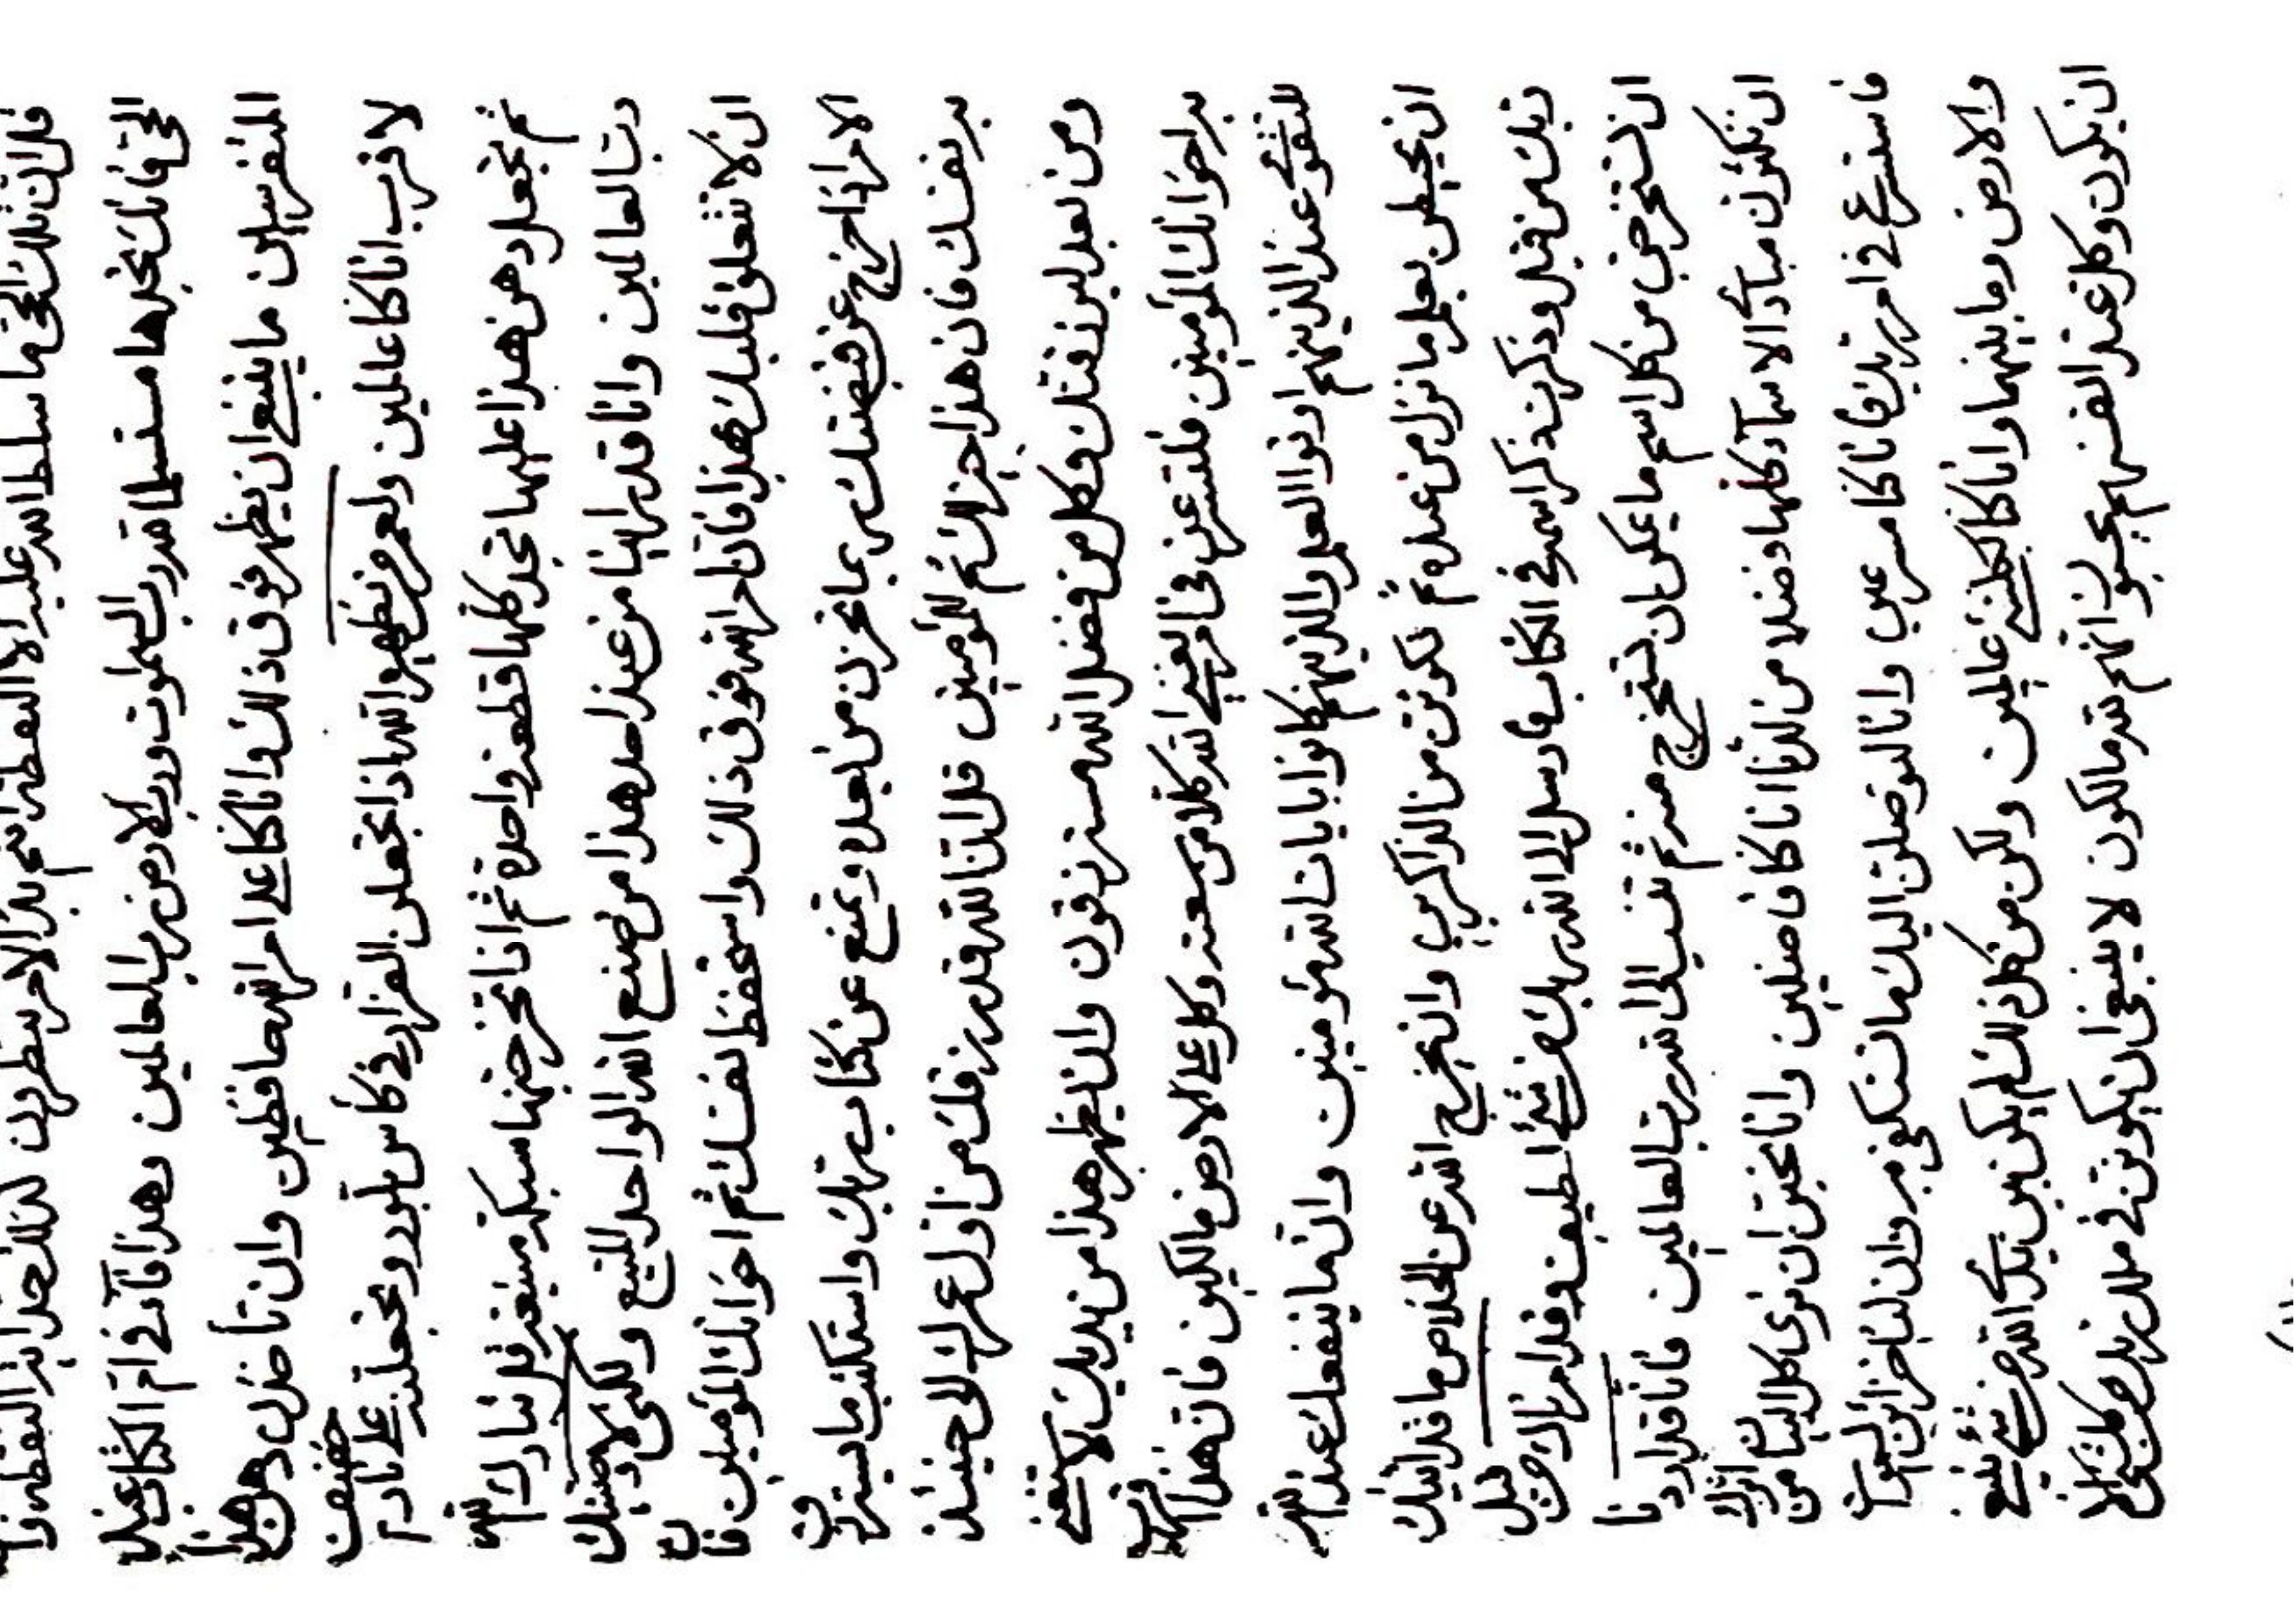 قل ان تلك الحق ما سلط الله عليه الا النقطة انتم بذا الامر ينظرون لذلك النقطه
الحق فانك تجدها مستسلما قدرب السموات ورب الارض رب العالمين وهذا في ام الكتاب عند
المتفرسين ما ينبغي ان يظهر فوق ذلك وانا كنا على امر الله حافظين وان تأخذن دهن هذا
لا قرب انا كنا عالمين ولعمر من نظهره الله اذا تجعلن الفرار في كأس بلور وتجعلنه على نار خفيف
ثم تجعل دهن هذا عليها تجد كلها قطعة واحدة ثم اذا تخرجنها قل تبارك الله
رب العالمين وانا قد راينا من عند احد هذا من صنع الله الواحد المنيع ولكني
ان لا تتعلق قلبك بهذا فان امر الله فوق ذلك واستحفظ نفسك ثم اخوانك المؤمنين فان
الامر اذا خرج عن قبضتك ربما تحزن من بعد وتمنع عن كتاب ربك واستكتب ما
به نفسك فان هذا خير لك ثم للمؤمنين قل ان الله قد رزقك من اول عمرك الى حينئذ
ومن بعد ليرزقنك وكل من فضل الله مسترزقون وان يظهر هذا من يديك لا
اخوانك المؤمنين فلتسرعن في امر يغني الله كلا من سعته وكل على الارض مالكين فان هذا
للتقوى عند الذينهم اوتوا العلم والذينهم كانوا بايات الله مؤمنين وان ما ينفعك عند الله
ان تحيطن بعلم ما نزل من عنده ثم تكونن من الذاكرين وان يخرج الله عن الخلاص ما قد اتيك
ربك من قبل وذكرت ذكر اسمه في الكتاب فارسل الى الله ربك من شئ لطيف وقد امرناك من قبل
ان تستخرجن من كل اسم ما يمكن ان تستخرج منه ثم تنسب الى الله رب العالمين فانا قد اردنا
ان تكونن مبدأ الاسمآء كلها وفضلا من لدنا انا كنا فاضلين وانا نحب ان نرى كل البيان من اثرك
فاسترع في امر ربك فانا كنا مسرعين وانا لنوصلن اليك ما تستكفي به وان لنا خزائن السموات
والارض وما بينهما وانا كنا بكلشئ عالمين ولكن من كل ذلك لم يكن بين يدي الله من شئ ينبغي
ان يكون وكل عند انفسهم يحسبون انهم لله مالكون لا ينبغي ان يكونن في ملك ربك من كلشئ الا